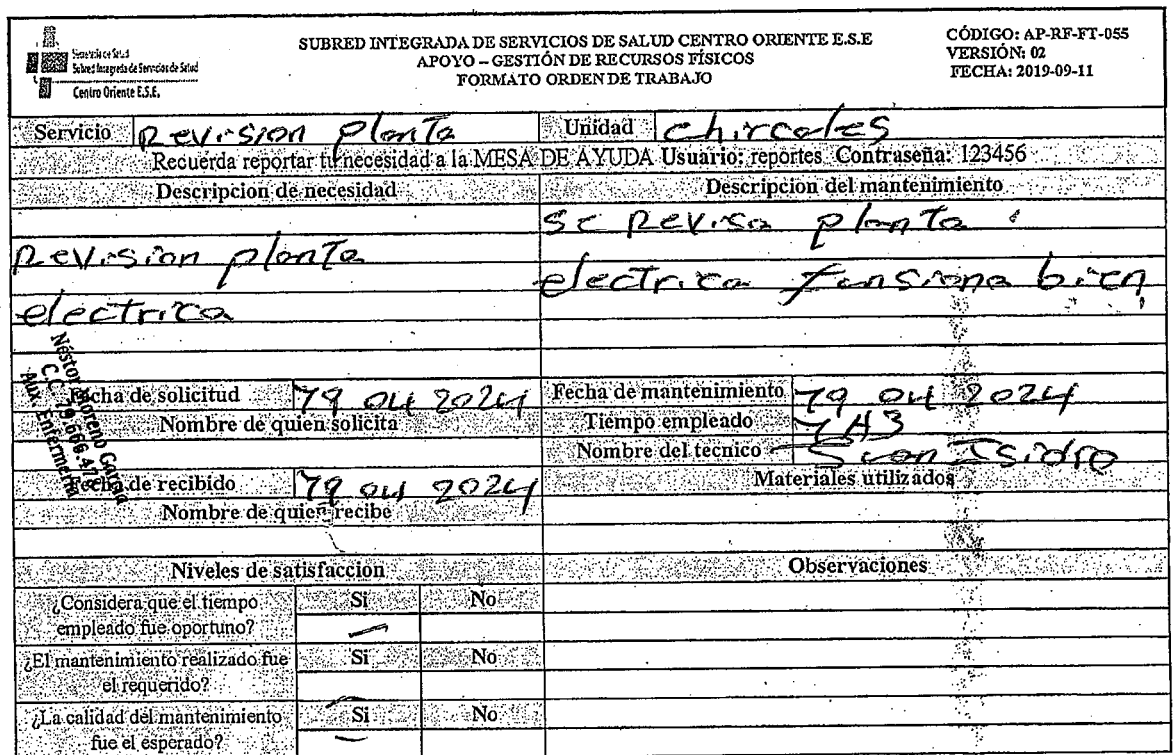 Secretaría de Salud
Subred Integrada de Servicios de Salud
Centro Oriente E.S.E.
SUBRED INTEGRADA DE SERVICIOS DE SALUD CENTRO ORIENTE E.S.E
APOYO – GESTIÓN DE RECURSOS FÍSICOS
FORMATO ORDEN DE TRABAJO
CÓDIGO: AP-RF-FT-055
VERSIÓN: 02
FECHA: 2019-09-11
Servicio Revision planta Unidad chircales
Recuerda reportar tu necesidad a la MESA DE AYUDA Usuario: reportes Contraseña: 123456
Descripcion de necesidad Descripcion del mantenimiento
Revision planta
electrica
se Revisa planta
electrica funsiona bien
Néstor Moreno García
C.C. 79.666.47
Aux Enfermería
Fecha de solicitud 19 04 2024 Fecha de mantenimiento 19 04 2024
Nombre de quien solicita Tiempo empleado
Nombre del tecnico Isidro
Fecha de recibido 19 04 2024 Materiales utilizados
Nombre de quien recibe
Niveles de satisfaccion Observaciones
¿Considera que el tiempo
empleado fue oportuno?
Si No
¿El mantenimiento realizado fue
el requerido?
Si No
¿La calidad del mantenimiento
fue el esperado?
Si No